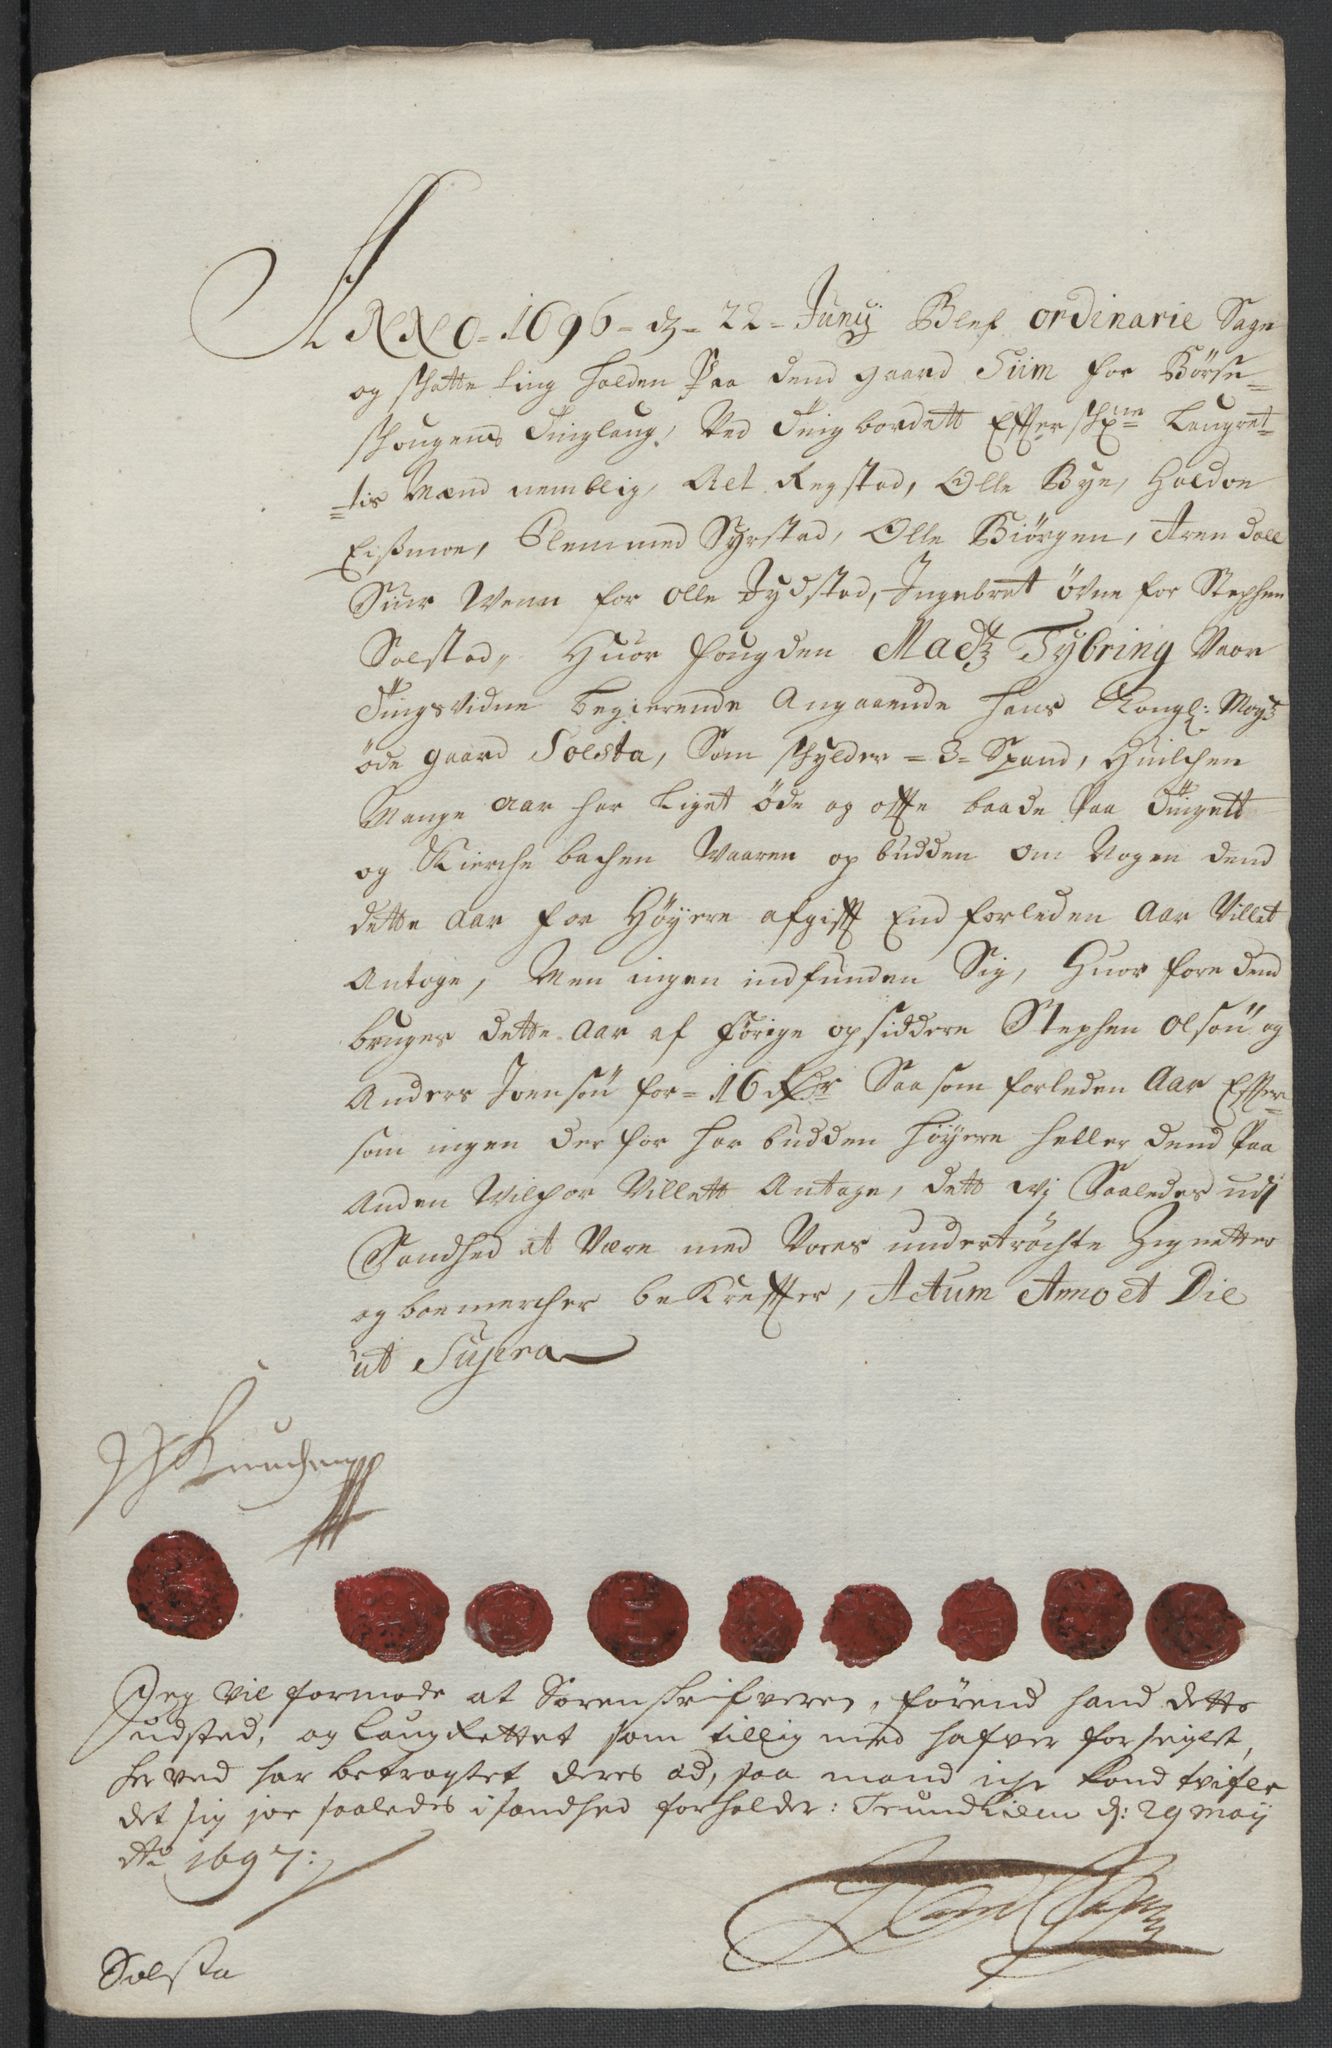 ANNO- 1696- dz- 22- Junij Blef ordinarie Sage
og schatte ting holden Paa dend gaard Siim for Börse-
schougens Tinglaug, Ved Tingbordett Effterschne Laugret-
-tis Mænd nemblig, Ret Regstad, Olle Bye, Haldoe
Eissmoe, Clemmed Syrstad, Olle Biörgen, Aren Dall
Siur Wenn for olle Jydstad, Ingebret öfne for Stephen
Solstad, Huor fougden Madtz Tybring Vaar
Tingsvidne begierende Angaaende hans Kongl: Maytz
öde gaard Solsta, Som schylder = 3= Spand, Huilchen
Mange aar har Liget öde og offte baade Paa Tingett
og Kierche bachen Waaren op budden om Nogen dend
dette aar for Höyere afgifft End forleden Aar Villet
Antage, Men ingen indfunden Sig, Huor fore dend
bruges dette Aar af förige opsiddere Stephen olsön og
Anders Joensön for= 16 Saa som forleden Aar Effter-
som ingen der for har budden höyere heller dend Paa
Anden Wilchor Villett Antage, dett wj Saaledes udj
Sandhed at Være med Vores undertröchte Zignetter
og boemercher bekreffter, Actum Anno et Die
ut Supra
Jeg vil formode at Sorenskrifveren, förend hand dette
udsted, og LaugRettet som tillig med hafver forseiglet,
her ved har betragtet deres æd, saa mand iche kand tvifle
det sig joe saaledes i sandhed forholder: Trundhiem d: 29 Maij
Ao 1697:
Solsta